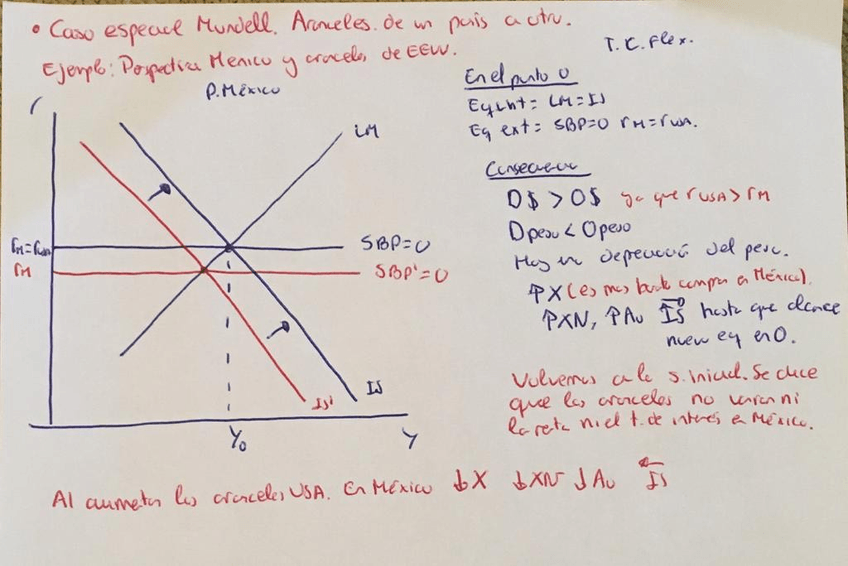 • Caso especial Mundell. Aranceles de un país a otro.
T.C. Flex.
Ejemplo: Perspectiva Mexico y aranceles de EEUU.
P.México
r
LM
rM=rUSA
rM
SBP=0
SBP'=0
IS
IS'
Y0
Y
En el punto 0
Eq int = LM=IS
Eq ext = SBP=0 rM=rUSA.
Consecuencia
D$ > O$ ya que rUSA>rM
Dpeso < Opeso
Hay una depreciación del peso.
↑X (es mas barato comprar en México).
↑XN, ↑AU IS→ hasta que alcance
nuevo eq en 0.
Volvemos a la s. inicial. Se dice
que los aranceles no varan ni
la renta ni el t. de interés en México.
Al aumentar los aranceles USA. En México ↓X ↓XN ↓AU IS←